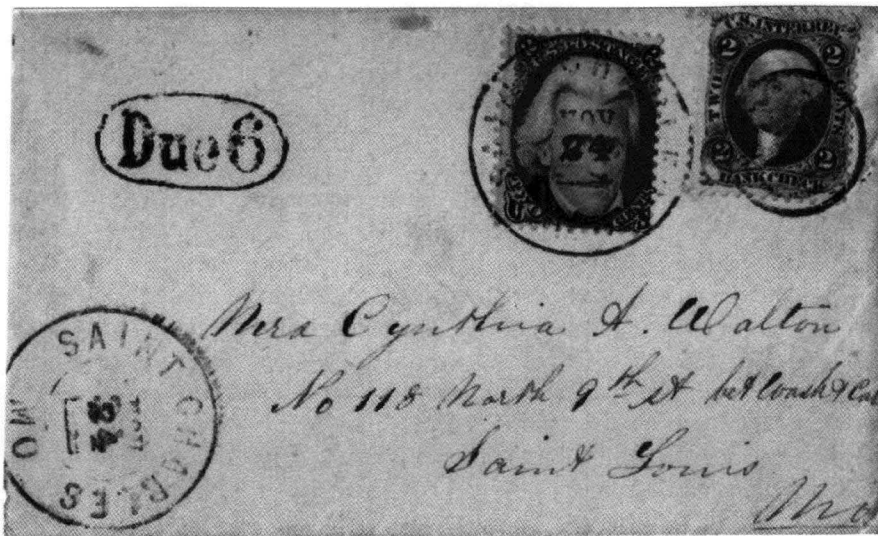 Due 6
U.S. POSTAGE
2 2
NOV
24
U.S. INTER. REV.
2 2
TWO CENTS
2 2
BANK CHECK
SAINT CHARLES MO
NOV
24
Mrs Cynthia A. Walton
No 118 North 9th st bet Wash & Ca
Saint Louis
Mo